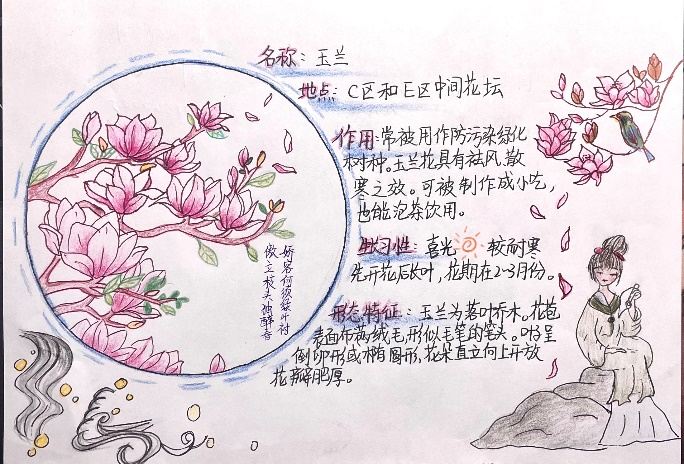 名称：玉兰
地点：C区和E区中间花坛
作用：常被用作防污染绿化
树种。玉兰花具有祛风散
寒之效。可被制作成小吃，
也能泡茶饮用。
生长习性：喜光 较耐寒
先开花后长叶，花期在2-3月份。
形态特征：玉兰为落叶乔木。花苞
表面布满绒毛，形似毛笔的笔头。叶呈
倒卵形或椭圆形，花朵直立向上开放
花瓣肥厚。
娇容何须绿叶衬
傲立枝头独醉春